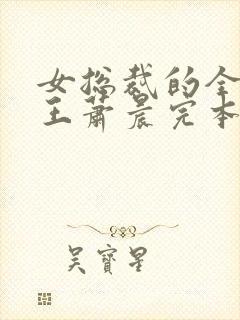 女总裁的全
王萧晨完本
吴宝星